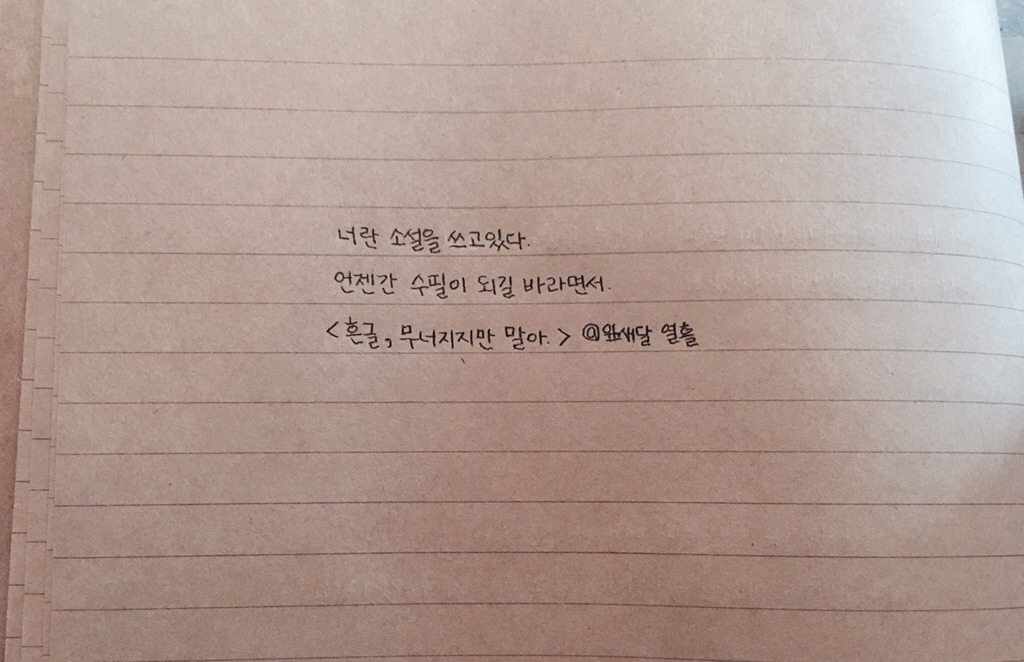 너란 소설을 쓰고있다.
언젠간 수필이 되길 바라면서.
<흔글, 무너지지만 말아.> @잎새달 열흘